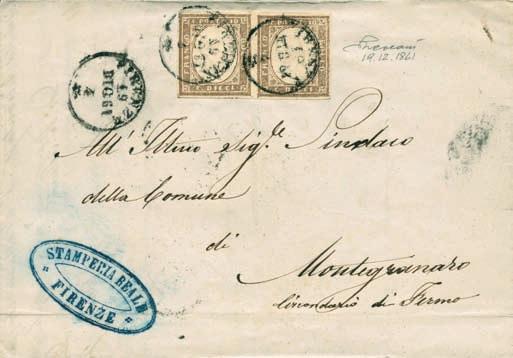 C. DIECI.
C. DIECI.
FIRENZE
19
DIC 61
4
19.12.1861
All' Illmo Sigr Sindaco
della Comune
di
Montegranaro
circondario di Fermo
STAMPERIA REALE
FIRENZE